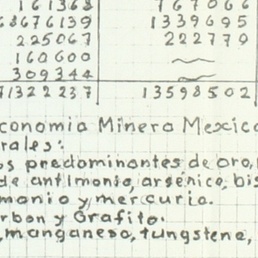 161368 767066
68676139 1339695
225067 222779
160600
309344
71322237 13598502
conomia Minera Mexica
rales:
os predominantes de oro,
de antimonio, arsénico, bis
monio y mercurio.
rbon y Grafito.
, manganeso, tungsteno,